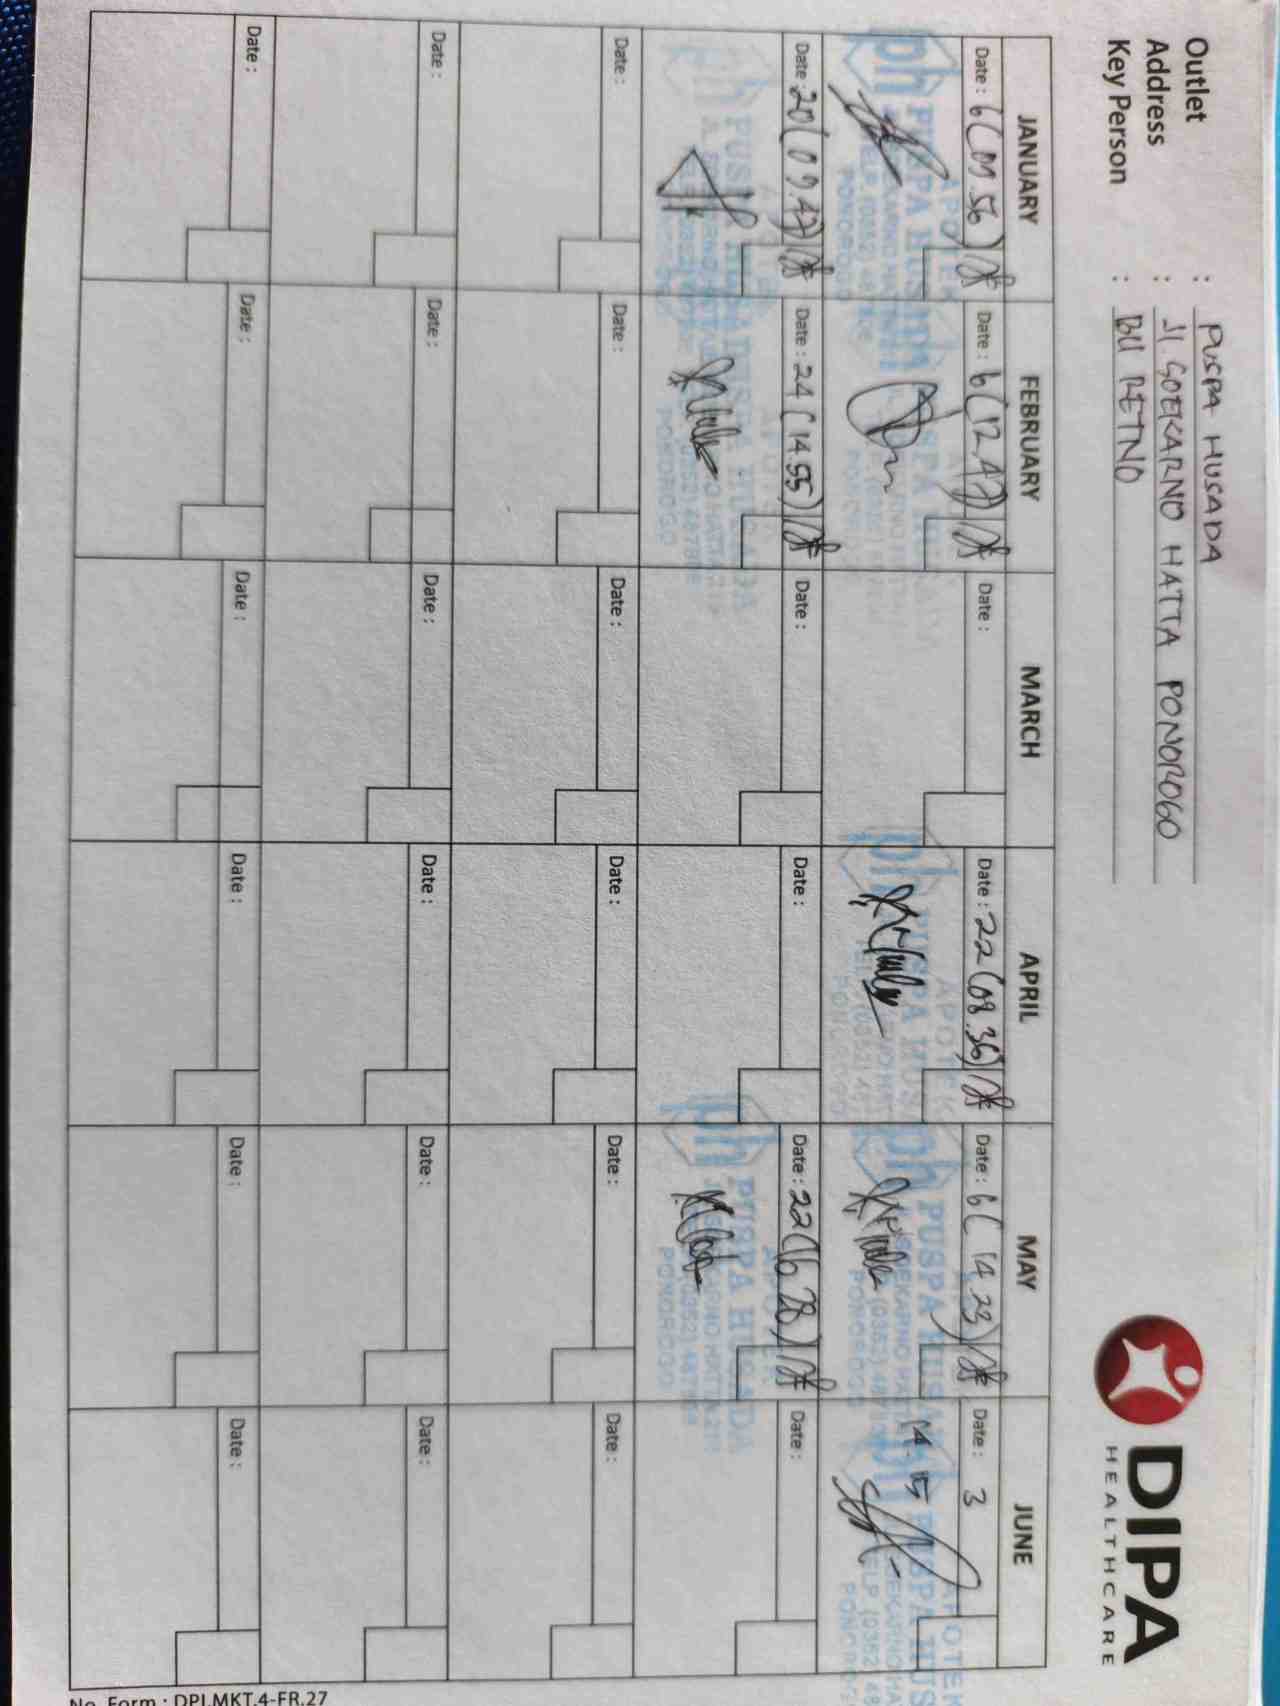 Outlet : PUSPA HUSADA
Address : Jl. SOEKARNO HATTA PONOROGO
Key Person : BU RETNO
DIPA
HEALTHCARE
JANUARY FEBRUARY MARCH APRIL MAY JUNE
Date : 6 (09.56) Date : 6 (12.47) Date : Date : 22 (08.36) Date : 6 (14.23) Date : 3
14.15
APOTEK
PUSPA HUSADA
PONOROGO
Date : 20 (09.47) Date : 24 (14.55) Date : Date : Date : 22 (16.28) Date :
PUSPA HUSADA
PONOROGO
Date : Date : Date : Date : Date : Date :
Date : Date : Date : Date : Date : Date :
Date : Date : Date : Date : Date : Date :
No. Form : DPI.MKT.4-FR.27